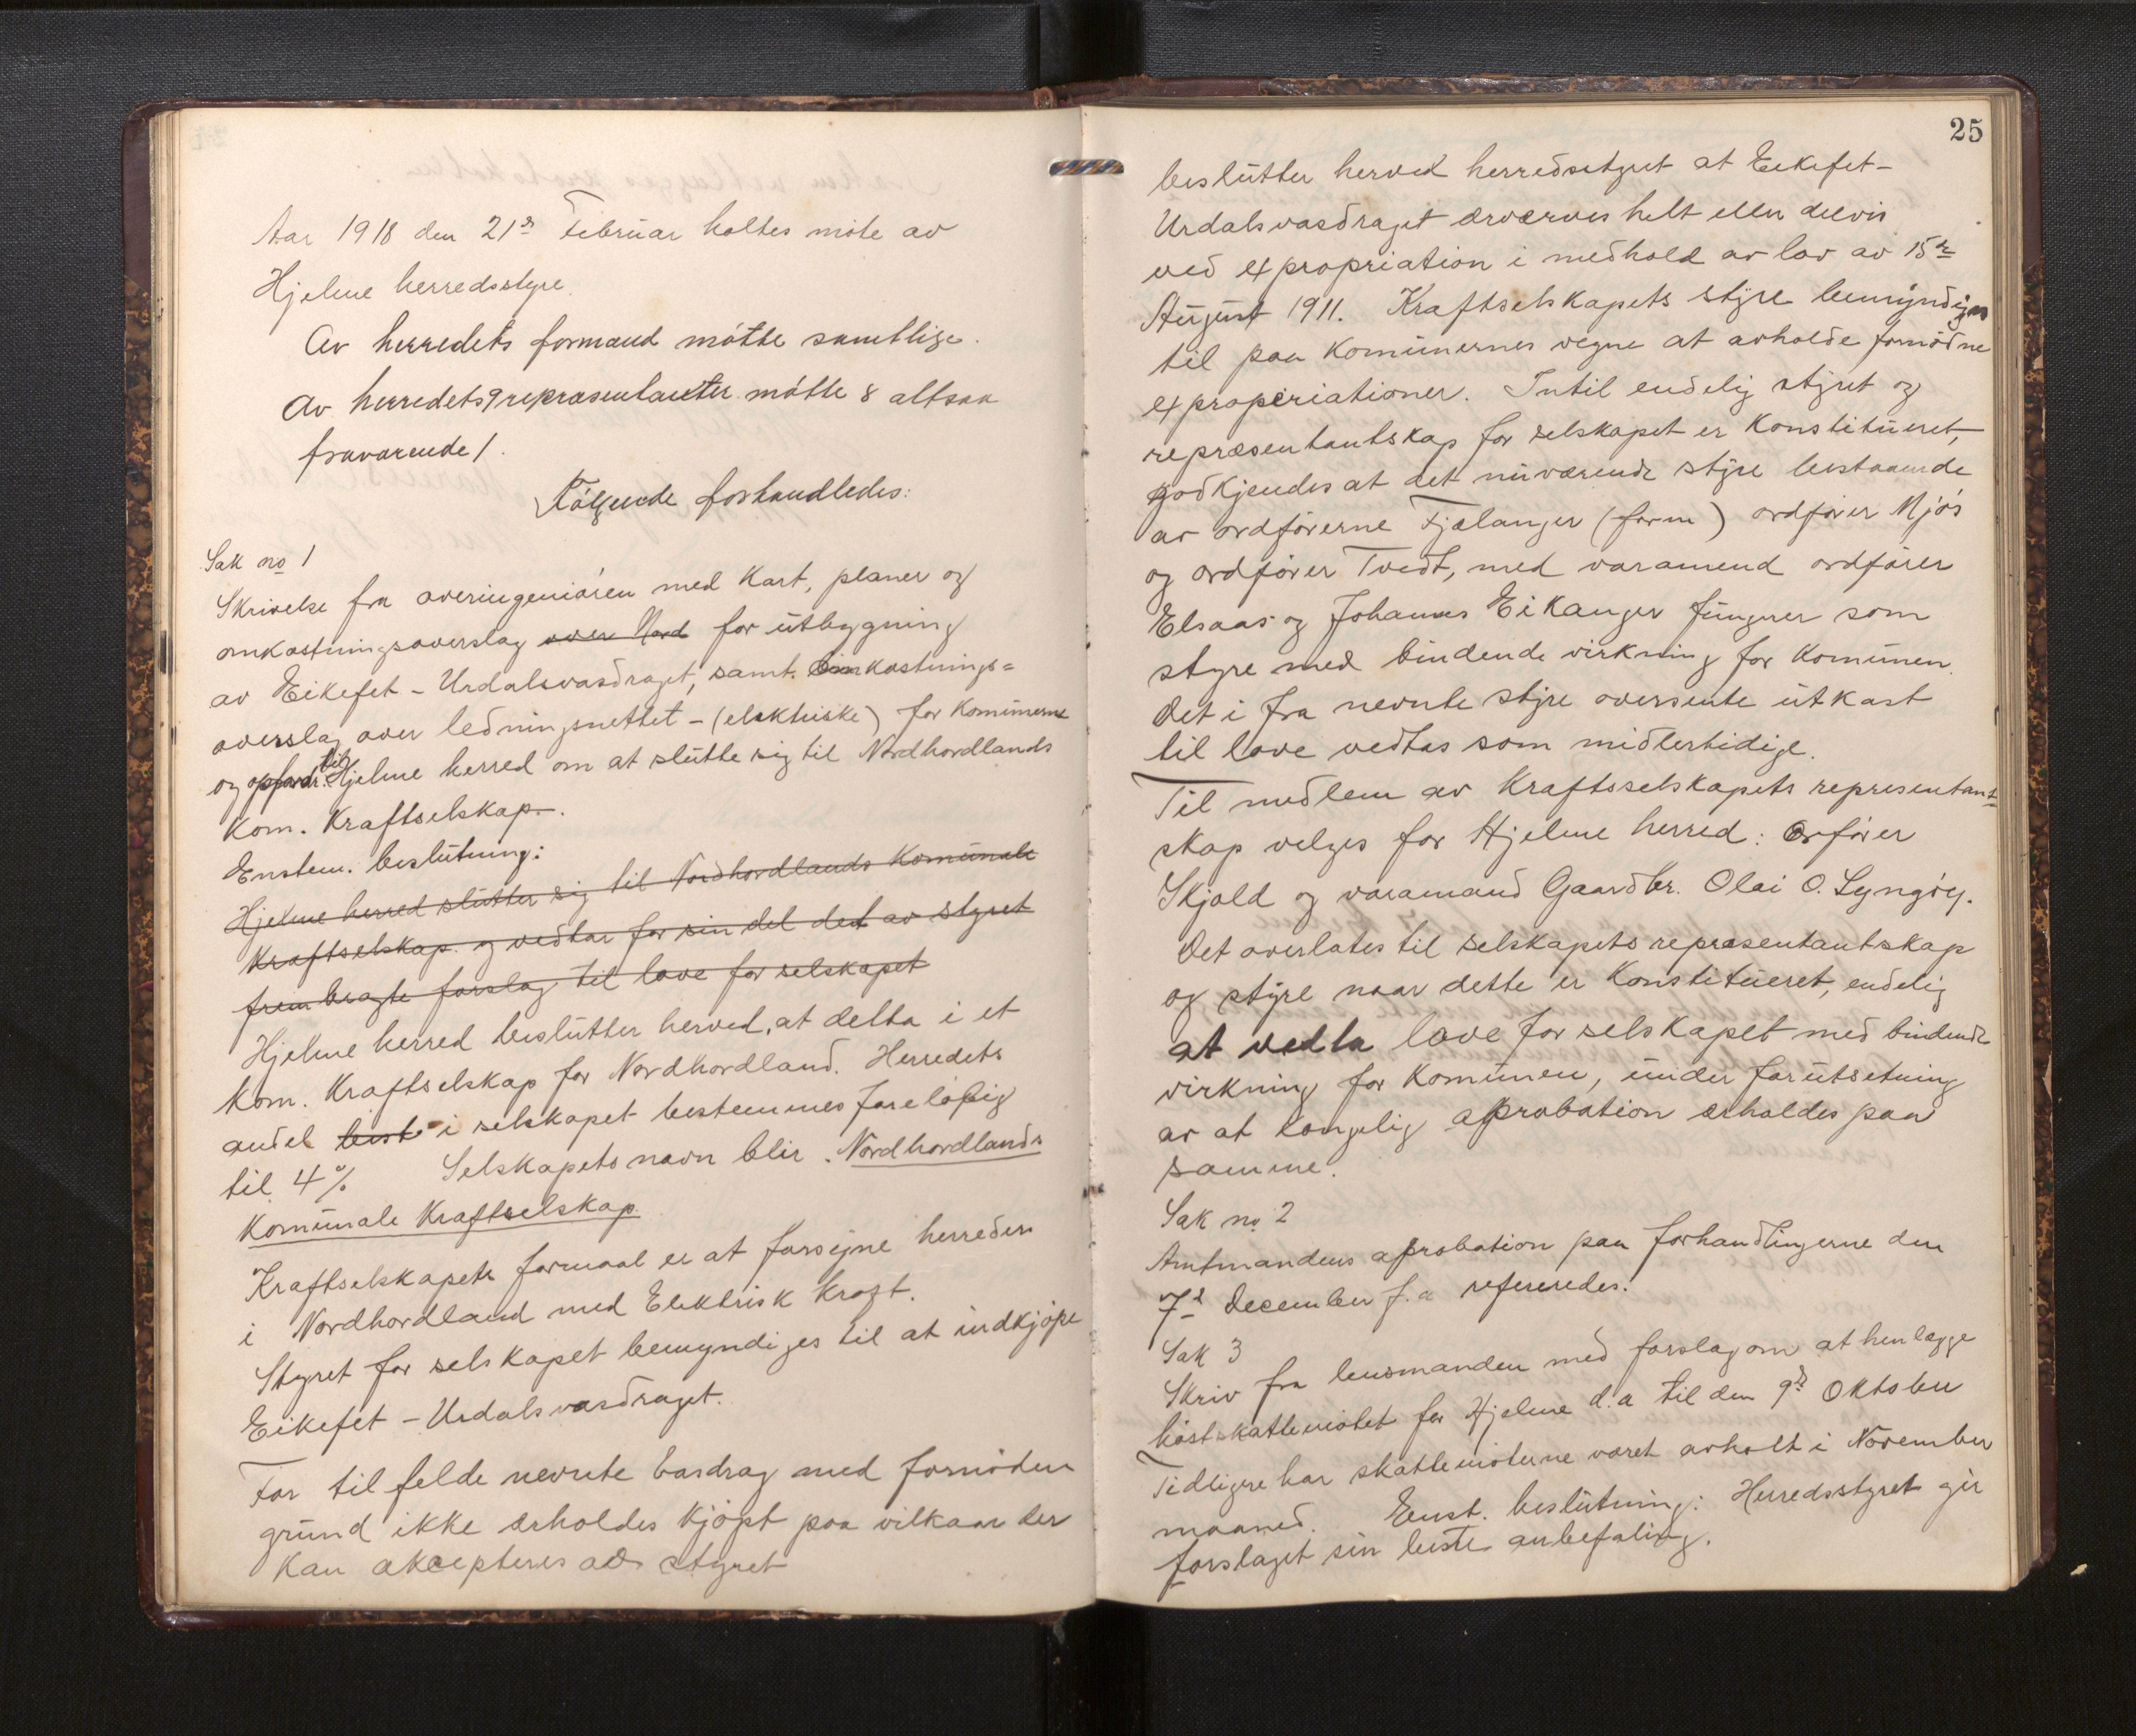 Aar 1918 den 21de Februar holtes møte av
Hjelme herredsstyre.
Av herredets formænd møtte samtlige.
Av herredets 9 repræsentanter møtte 8 altsaa
fraværende 1.
Følgende forhandledes:
Sak no 1
Skrivelse fra overingeniøren med Kart, planer og
omkostningsoverslag over Nord for utbygning
av Eikefet - Urdalsvasdraget, samt. Omkostnings=
overslag over ledningsnettet - (elektriske) for Komunerne
og opfordr. til Hjelme herred om at slutte sig til Nordhordlands
Kom. Kraftselskap.
Enstem. beslutning:
Hjelme herred slutter sig til Nordhordlands Komunale
Kraftselskap. og vedtar for sin del det av styret
frembragte forslag til love for selskapet
Hjelme herred beslutter herved, at delta i et
Kom. Kraftselskap for Nordhordland. Herredets
andel best i selskapet bestemmes foreløbig
til 4% Selskapets navn blir. Nordhordlands
Komunale Kraftselskap
Kraftselskapets formaal er at forsyne herreder
i Nordhordland med Elektrisk Kraft.
Styret for selskapet bemyndiges til at indkjøpe
Eikefet - Urdalsvasdraget.
For tilfelde nevnte vasdrag med fornøden
grund ikke erholdes Kjøpt paa vilkaar der
Kan akcepteres av styret
25
beslutter herved herredsstyret at Eikefet-
Urdalsvasdraget erverves helt eller delvis
ved expropriation i medhold av lov av 15de
August 1911. Kraftselskapets styre bemyndiges
til paa Komunernes vegne at avholde fornødne
expropriationer. Intil endelig styret og
repræsentantskap for selskapet er Konstitueret,
godkjendes at det nuværende styre bestaaende
av ordførerne Fjælanger (form) ordfører Mjøs
og ordfører Tvedt, med varamend ordfører
Elsaas og Johannes Eikanger fungerer som
styre med bindende virkning for Komunen.
Det i fra nevnte styre oversente utkast
til love vedtas som midlertidige.
Til medlem av Kraftsselskapets representant-
skap velges for Hjelme herred: Orfører
Skjold og varamand Gaardbr. Olai O. Lyngøy.
Det overlates til selskapets repræsentantskap
og styre naar dette er Konstitueret, endelig
at vedta love for selskapet med bindende
virkning for Komunen, under forutsetning
av at kongelig aprobation erholdes paa
samme.
Sak no 2
Amtmandens aprobation paa forhandlingerne den
7de December f.a refereredes.
Sak 3
Skriv fra lensmanden med forslag om at henlægge
høstskattemøtet for Hjelme d.a til den 9de Oktober
Tidligere har skattemøterne været avholt i November
maaned. Enst. beslutning: Herredsstyret gir
forslaget sin beste anbefaling.